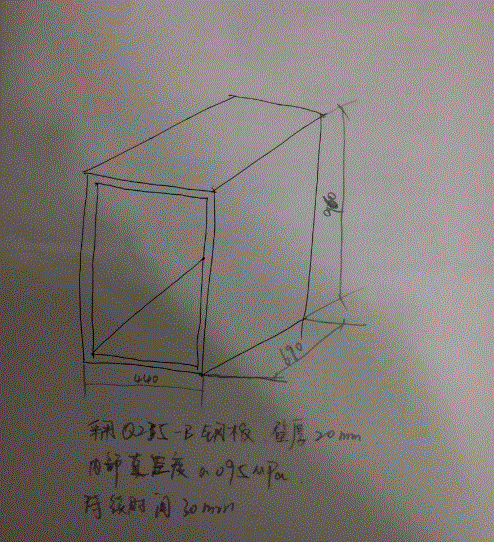 690
440
采用Q235-B钢板 壁厚20mm
内部真空度0.095MPa
持续时间30min